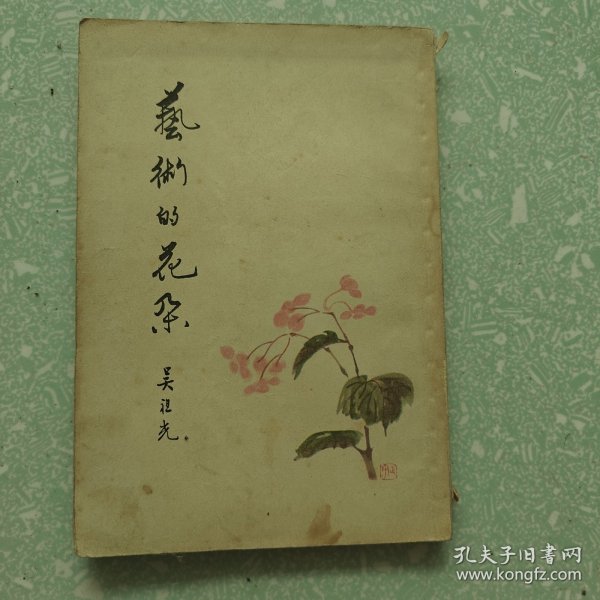 藝術的花朵
吴祖光
孔夫子旧書网
www.kongfz.com